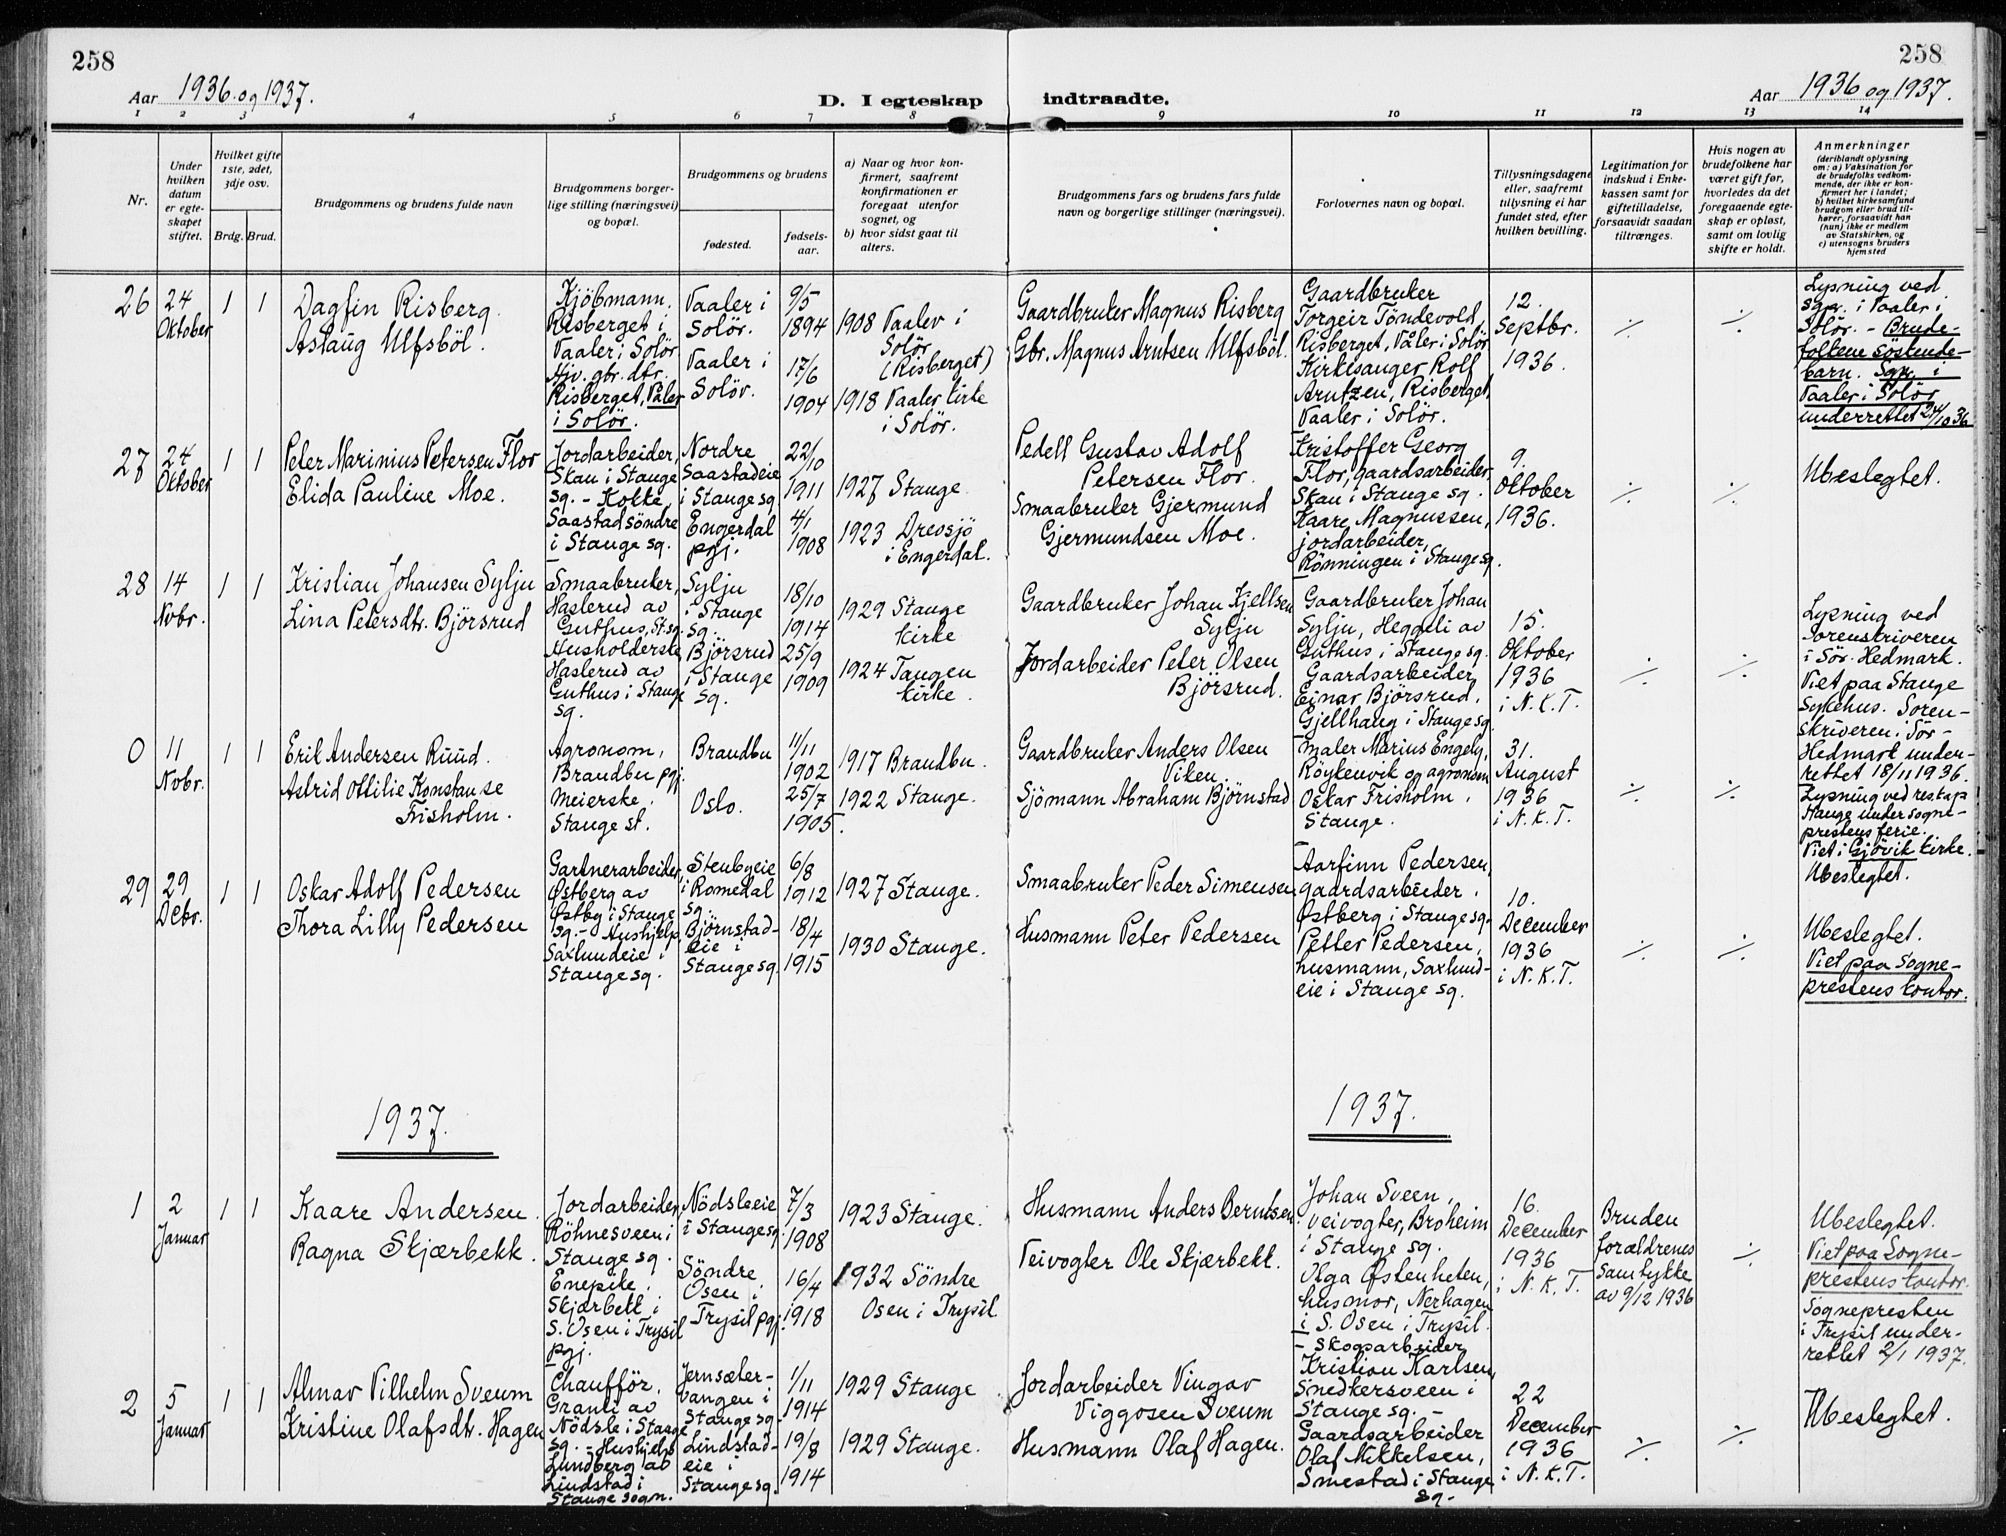 258
258
Aar 1936 og 1937.
D. I egteskap indtraadte.
Aar 1936 og 1937.
1 2 3 4 5 6 7 8 9 10 11 12 13 14
Nr.
Under
hvilken
datum
er egte-
skapet
stiftet.
Hvilket gifte
1ste, 2det,
3dje osv.
Brdg. Brud.
Brudgommens og brudens fulde navn
Brudgommens borger-
lige stilling (næringsvei)
og bopæl.
Brudgommens og brudens
fødested.
fødsels-
aar.
a) Naar og hvor kon-
firmert, saafremt
konfirmationen er
foregaat utenfor
sognet, og
b) hvor sidst gaat til
alters.
Brudgommens fars og brudens fars fulde
navn og borgerlige stillinger (næringsvei).
Forlovernes navn og bopæl.
Tillysningsdagene
eller, saafremt
tillysning ei har
fundet sted, efter
hvilken bevilling.
Legitimation for
indskud i Enke-
kassen samt for
giftetilladelse,
forsaavidt saadan
tiltrænges.
Hvis nogen av
brudefolkene har
været gift før,
hvorledes da det
foregaaende egte-
skap er opløst,
samt om lovlig
skifte er holdt.
Anmerkninger
(deriblandt oplysning
om: a) Vaksination for
de brudefolks vedkom-
mende, der ikke er kon-
firmert her i landet;
b) hvilket kirkesamfund
brudgom eller brud til-
hører, forsaavidt han
(hun) ikke er medlem
av Statskirken, og
c) utensogns bruders
hjemsted
26
24
Oktober
1 1
Dagfin Risberg.
Aslaug Ulfsböl.
Kjöbmann,
Risberget i
Vaaler i Solör
Hjv. gbr. dtr.
Risberget, Våler
i Solör.
Vaaler i
Solör.
Vaaler i
Solör.
9/5
1894
17/6
1904
1908 Vaaler i
Solör
(Risberget)
1918 Vaaler kirke
i Solör.
Gaardbruker Magnus Risberg
Gbr. Magnus Arntsen Ulfsböl.
Gaardbruker
Torgeir Töndevold,
Risberget, Våler i Solör
Kirkesanger Rolf
Arntzen, Risberget,
Vaaler i Solör.
12.
Septbr.
1936.
·/· ·/·
Lysning ved
sgpr. i Vaaler i
Solör. - Brude-
folkene söskende-
barn. Sgpr. i
Vaaler i Solör
underrettet 24/10 36
27
24
Oktober
1 1
Peter Marinius Petersen Flor
Elida Pauline Moe.
Jordarbeider,
Skau i Stange
sg. - Kokke,
Saastad söndre
i Stange sg.
Nordre
Saastadeie
i Stange sg
Engerdal
pgj.
22/10
1911
4/1
1908
1927 Stange
1923 Drevsjö
i Engerdal.
Pedell Gustav Adolf
Petersen Flor.
Smaabruker Gjermund
Gjermundsen Moe.
Kristoffer Georg
Flor, gaardsarbeider,
Skau i Stange sg.
Kaare Magnussen,
jordarbeider,
Rönningen i Stange sg.
9.
Oktober
1936.
·/· ·/·
Ubeslegtet.
28
14
Novbr.
1 1
Kristian Johansen Sylju
Lina Petersdtr. Björsrud
Smaabruker,
Haslerud av
Guthus, St. sg.
Husholderske,
Haslerud av
Guthus i Stange
sg.
Sylju
i Stange
sg.
Björsrud
i Stange
sg.
18/10
1914
25/9
1909
1929 Stange
kirke
1924 Tangen
kirke.
Gaardbruker Johan Kjellsen
Sylju
Jordarbeider Peter Olsen
Björsrud.
Gaardbruker Johan
Sylju, Heggeli av
Guthus i Stange sg.
Gaardsarbeider
Einar Björsrud,
Gjellhaug i Stange sg.
15.
Oktober
1936
i N.K.T.
·/· ·/·
Lysning ved
Sorenskriveren
i Sör-Hedmark.
Viet paa Stange
Sykehus. Soren-
skriveren i Sör-
Hedmark under-
rettet 18/11 1936.
0
11
Novbr.
1 1
Erik Andersen Ruud.
Astrid Ottilie Konstanse
Frisholm.
Agronom,
Brandbu pgj.
Meierske,
Stange st.
Brandbu
Oslo.
11/11
1902
25/7
1905.
1917 Brandbu.
1922 Stange.
Gaardbruker Anders Olsen
Viken
Sjömann Abraham Björnstad
Maler Marius Engely,
Röykenvik og agronom
Oskar Frisholm,
Stange.
31.
August
1936
i N.K.T.
·/· ·/·
Lysning ved res. kap.
Hauge under sogne-
prestens ferie.
Viet i Gjövik kirke.
Ubeslegtet.
29
29
Decbr.
1 1
Oskar Adolf Pedersen
Thora Lilly Pedersen
Gartnerarbeider,
Østberg av
Østby i Stange
sg. - Hushjelp,
Saxlundeie i
Stange sg.
Stenbyeie
i Romedal
sg.
Björnstad-
eie i
Stange sg.
6/8
1912
18/4
1915
1927 Stange.
1930 Stange.
Smaabruker Peder Simensen
Husmann Peter Pedersen
Aarfinn Pedersen,
gaardsarbeider,
Østberg i Stange sg.
Petter Pedersen,
husmann, Saxlund-
eie i Stange sg.
10.
December
1936
i N.K.T.
·/· ·/·
Ubeslegtet.
Viet paa Sogne-
prestens kontor.
1937.
1937.
1
2
Januar
1 1
Kaare Andersen
Ragna Skjærbekk.
Jordarbeider,
Röhnesveen i
Stange sg.
Enepike,
Skjærbekk i
S. Osen i Trysil
pgj.
Nödsleeie
i Stange sg.
Söndre
Osen i
Trysil pgj.
7/3
1908
16/4
1918
1923 Stange.
1932 Söndre
Osen i Trysil
Husmann Anders Berntsen
Veivogter Ole Skjærbekk.
Johan Sveen,
veivogter, Broheim
i Stange sg.
Olga Østenheten,
husmor, Nerhagen
i S. Osen i Trysil.
16.
December
1936
i N.K.T.
Bruden
forældrenes
samtykke
av 9/12 1936
·/·
Ubeslegtet.
Viet paa Sogne-
prestens kontor.
Sognepresten
i Trysil under-
rettet 2/1 1937.
2
5
Januar
1 1
Almar Vilhelm Sveum
Kristine Olafsdtr. Hagen
Chaufför,
Granli av
Nödsle i Stange
sg. - Hushjelp
Lundberg av
Lindstad i
Stange sogn.
Jernsæter-
vangen i
Stange sg.
Lindstad-
eie i
Stange sg.
1/11
1914
19/8
1914
1929 Stange
1929 Stange.
Jordarbeider Vingar
Viggosen Sveum
Husmann Olaf Hagen.
- Skogarbeider
Kristian Karlsen,
Snedkersveen i
Stange sg. -
Gaardsarbeider
Olaf Mikkelsen,
Smestad i Stange
sg.
22
December
1936
i N.K.T.
·/· ·/·
Ubeslegtet.